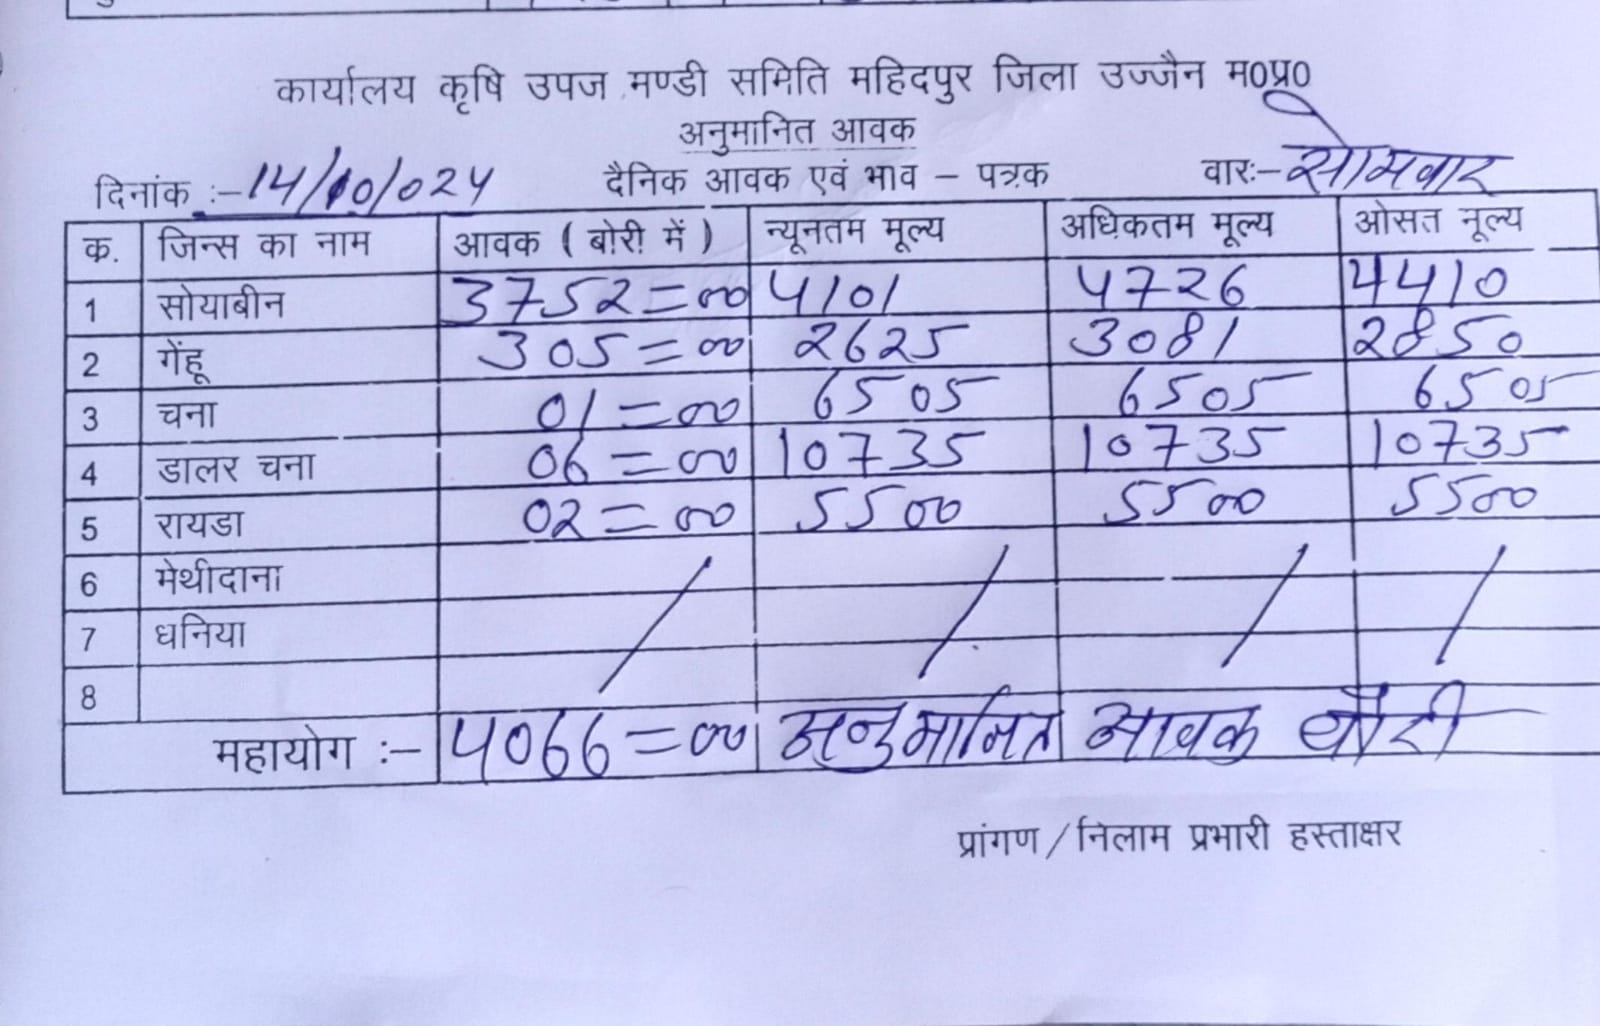 कार्यालय कृषि उपज मण्डी समिति महिदपुर जिला उज्जैन म0प्र0
अनुमानित आवक
दिनांक :- 14/10/024 दैनिक आवक एवं भाव – पत्रक वारः- सोमवार
क. जिन्स का नाम आवक ( बोरी में ) न्यूनतम मूल्य अधिकतम मूल्य ओसत मूल्य
1 सोयाबीन 3752=00 4101 4726 4410
2 गेंहू 305=00 2625 3081 2850
3 चना 01=00 6505 6505 6505
4 डालर चना 06=00 10735 10735 10735
5 रायडा 02=00 5500 5500 5500
6 मेथीदाना / / / /
7 धनिया
8
महायोग :- 4066=00 अनुमानित आवक बोरी
प्रांगण / निलाम प्रभारी हस्ताक्षर